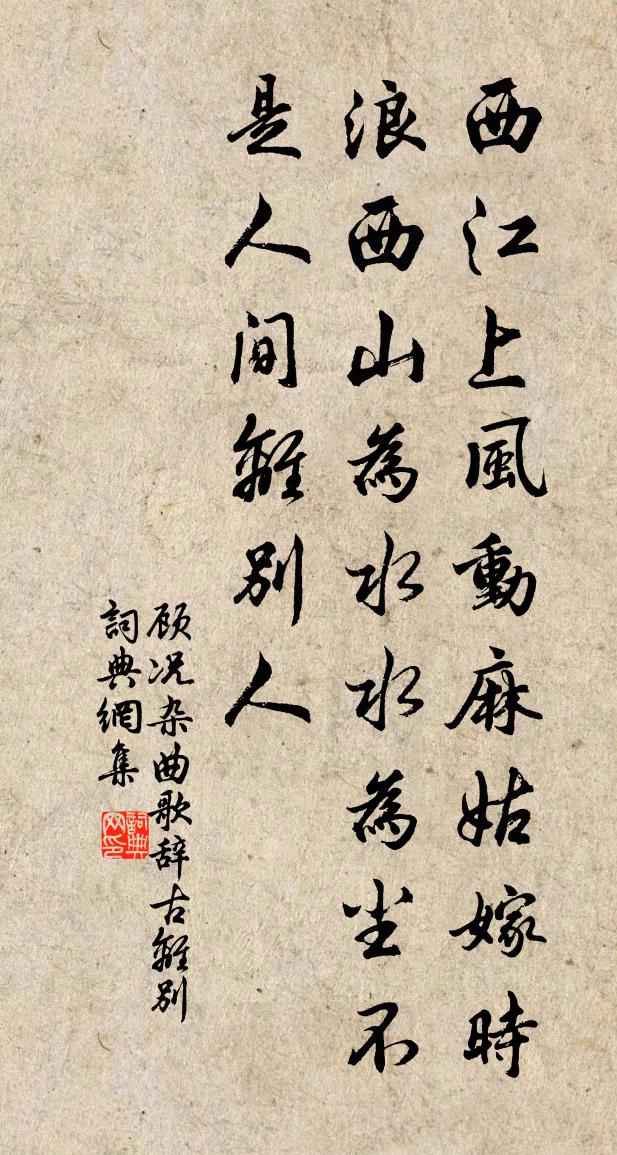 西江上風動麻姑嫁時
浪西山為水水為尘不
是人间離别人
顾况杂曲歌辞古離别
詞典網集
詞典网印